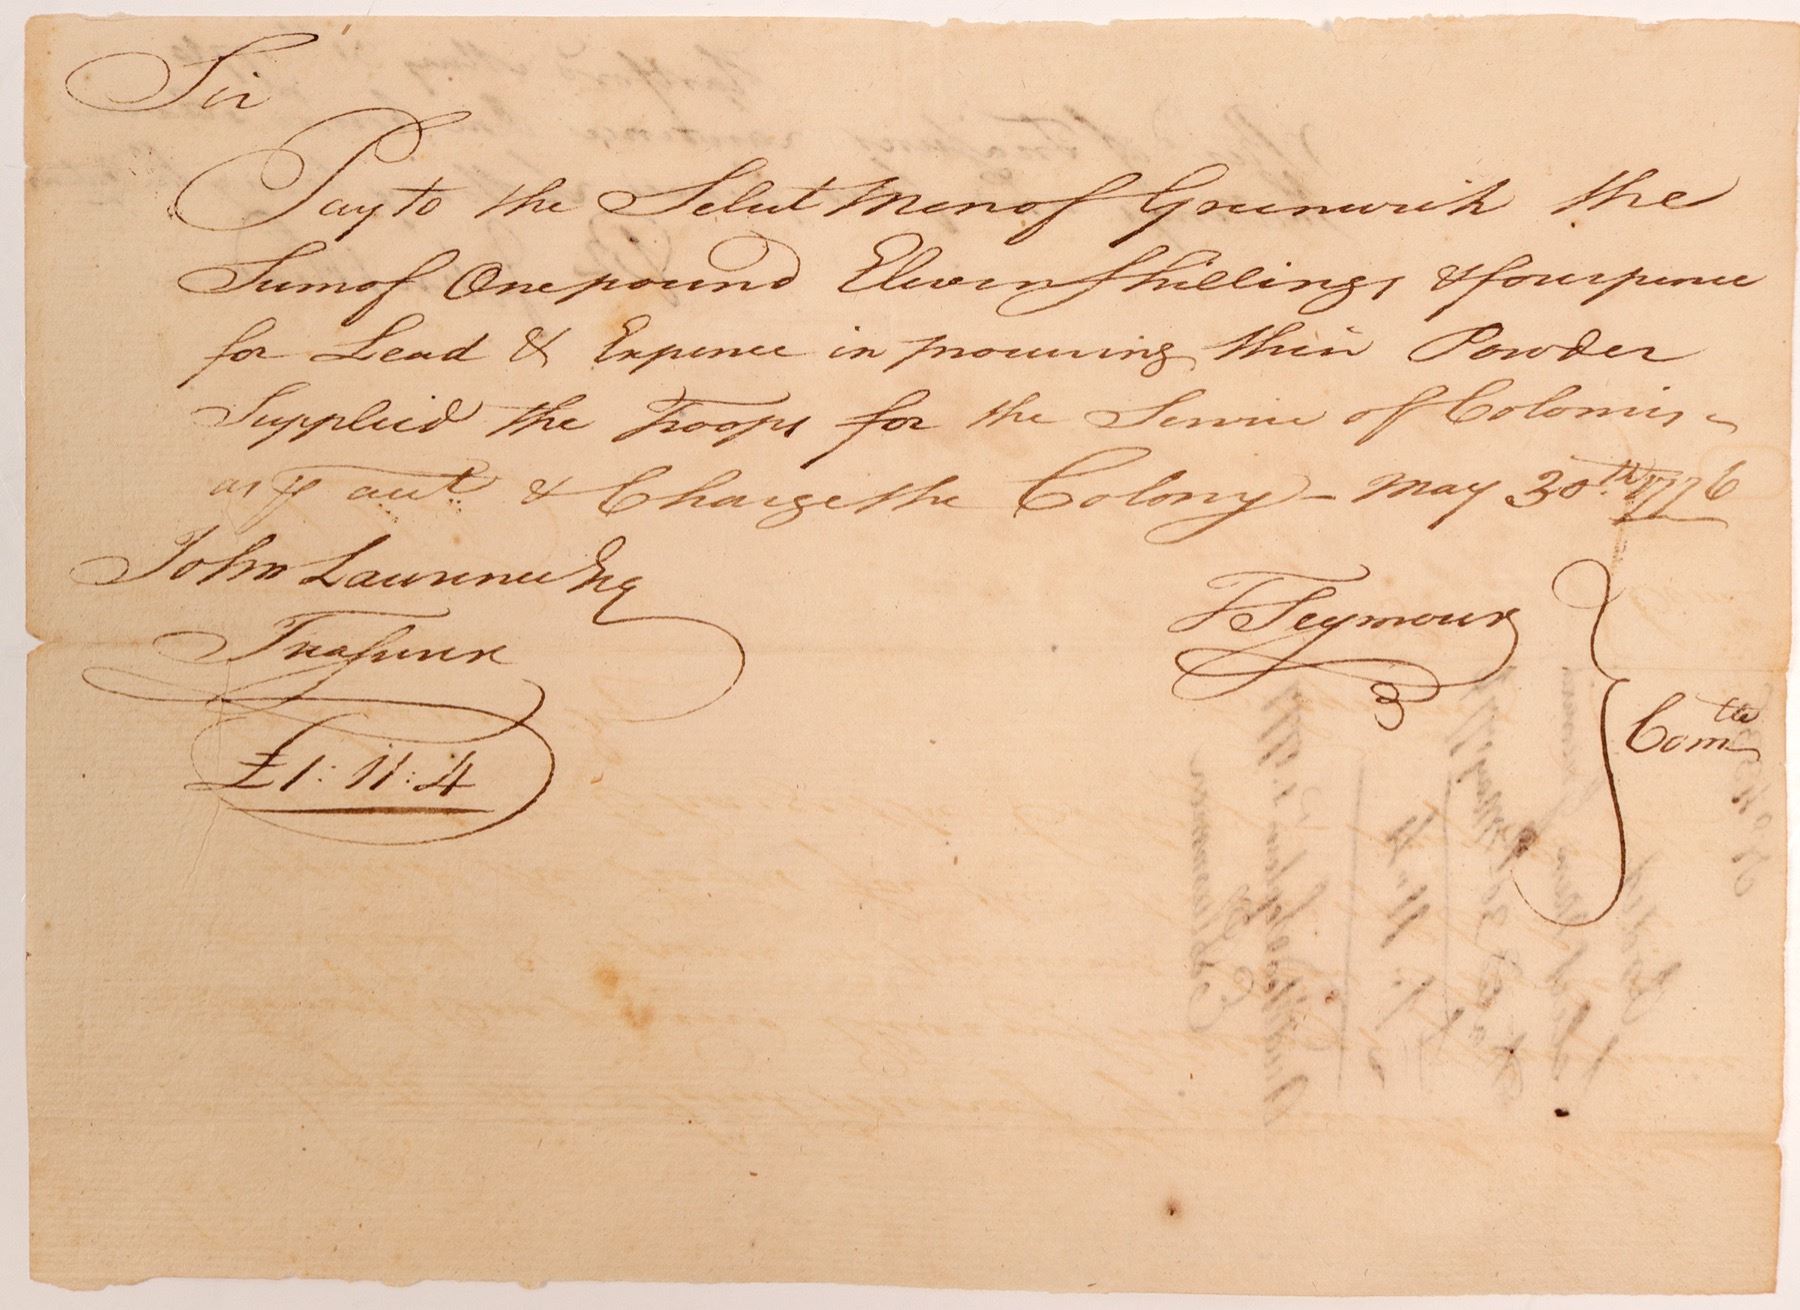 Sir
Pay to the Select Men of Greenwich the
Sum of One pound Eleven Shillings & fourpence
for Lead & Expence in procuring their Powder
Supplied the Troops for the Service of Colonies
as ⅌ acct & Charge the Colony – May 30th 1776
John Lawrence Esq
Treasurer
£1:11:4
T Seymour
Comtte